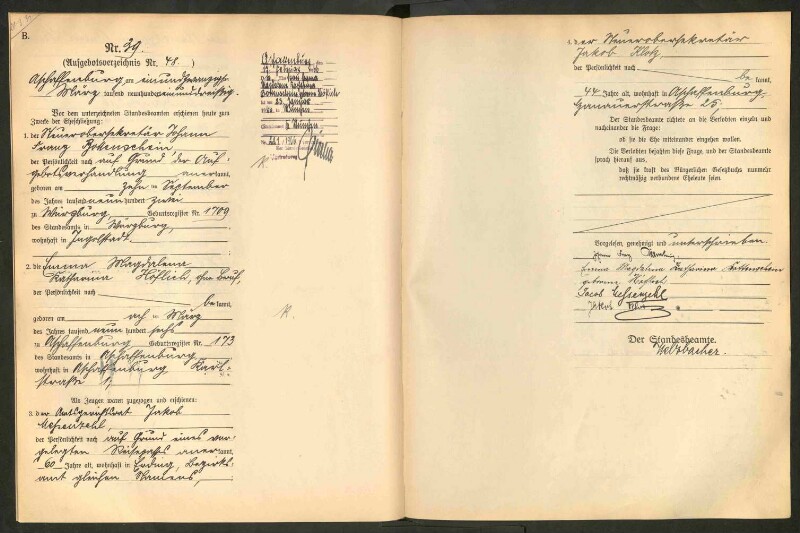 B.
Nr. 39.
(Aufgebotsverzeichnis Nr. 48.)
Aschaffenburg, am einundzwanzigsten
März tausend neunhundert einunddreißig.
Vor dem unterzeichneten Standesbeamten erschienen heute zum
Zwecke der Eheschließung:
1. der Steuerobersekretär Johann
Franz
der Persönlichkeit nach auf Grund der Auf-
gebotsverhandlung anerkannt,
geboren am zehn ten September
des Jahres tausend neun hundert zwei
zu Würzburg, Geburtsregister Nr. 1709
des Standesamts in Würzburg,
wohnhaft in Ingolstadt.
2. die Emma Magdalena
Katharina Höflich, ohne Beruf,
der Persönlichkeit nach
be kannt,
geboren am ach ten März
des Jahres tausend neun hundert sechs
zu Aschaffenburg, Geburtsregister Nr. 173
des Standesamts in Aschaffenburg
wohnhaft in Aschaffenburg, Karl-
straße 1,
Als Zeugen waren zugezogen und erschienen:
3. der Amtsgerichtsrat Jakob
der Persönlichkeit nach auf Grund eines vor-
gelegten Reisepasses anerkannt,
60 Jahre alt, wohnhaft in Erding, Bezirks-
amt gleichen Namens,
Aschaffenburg
Februar
in München
4. der Steuerobersekretär
Jakob Klotz,
der Persönlichkeit nach be kannt,
44 Jahre alt, wohnhaft in Aschaffenburg,
Hanauerstraße 25,
Der Standesbeamte richtete an die Verlobten einzeln und
nacheinander die Frage:
ob sie die Ehe miteinander eingehen wollen.
Die Verlobten bejahten diese Frage, und der Standesbeamte
sprach hierauf aus,
daß sie kraft des Bürgerlichen Gesetzbuchs nunmehr
rechtmäßig verbundene Eheleute seien.
Vorgelesen, genehmigt und unterschrieben.
Emma Magdalena Katharina
geborene Höflich
Jacob
Jakob
Der Standesbeamte.
Welzbacher.